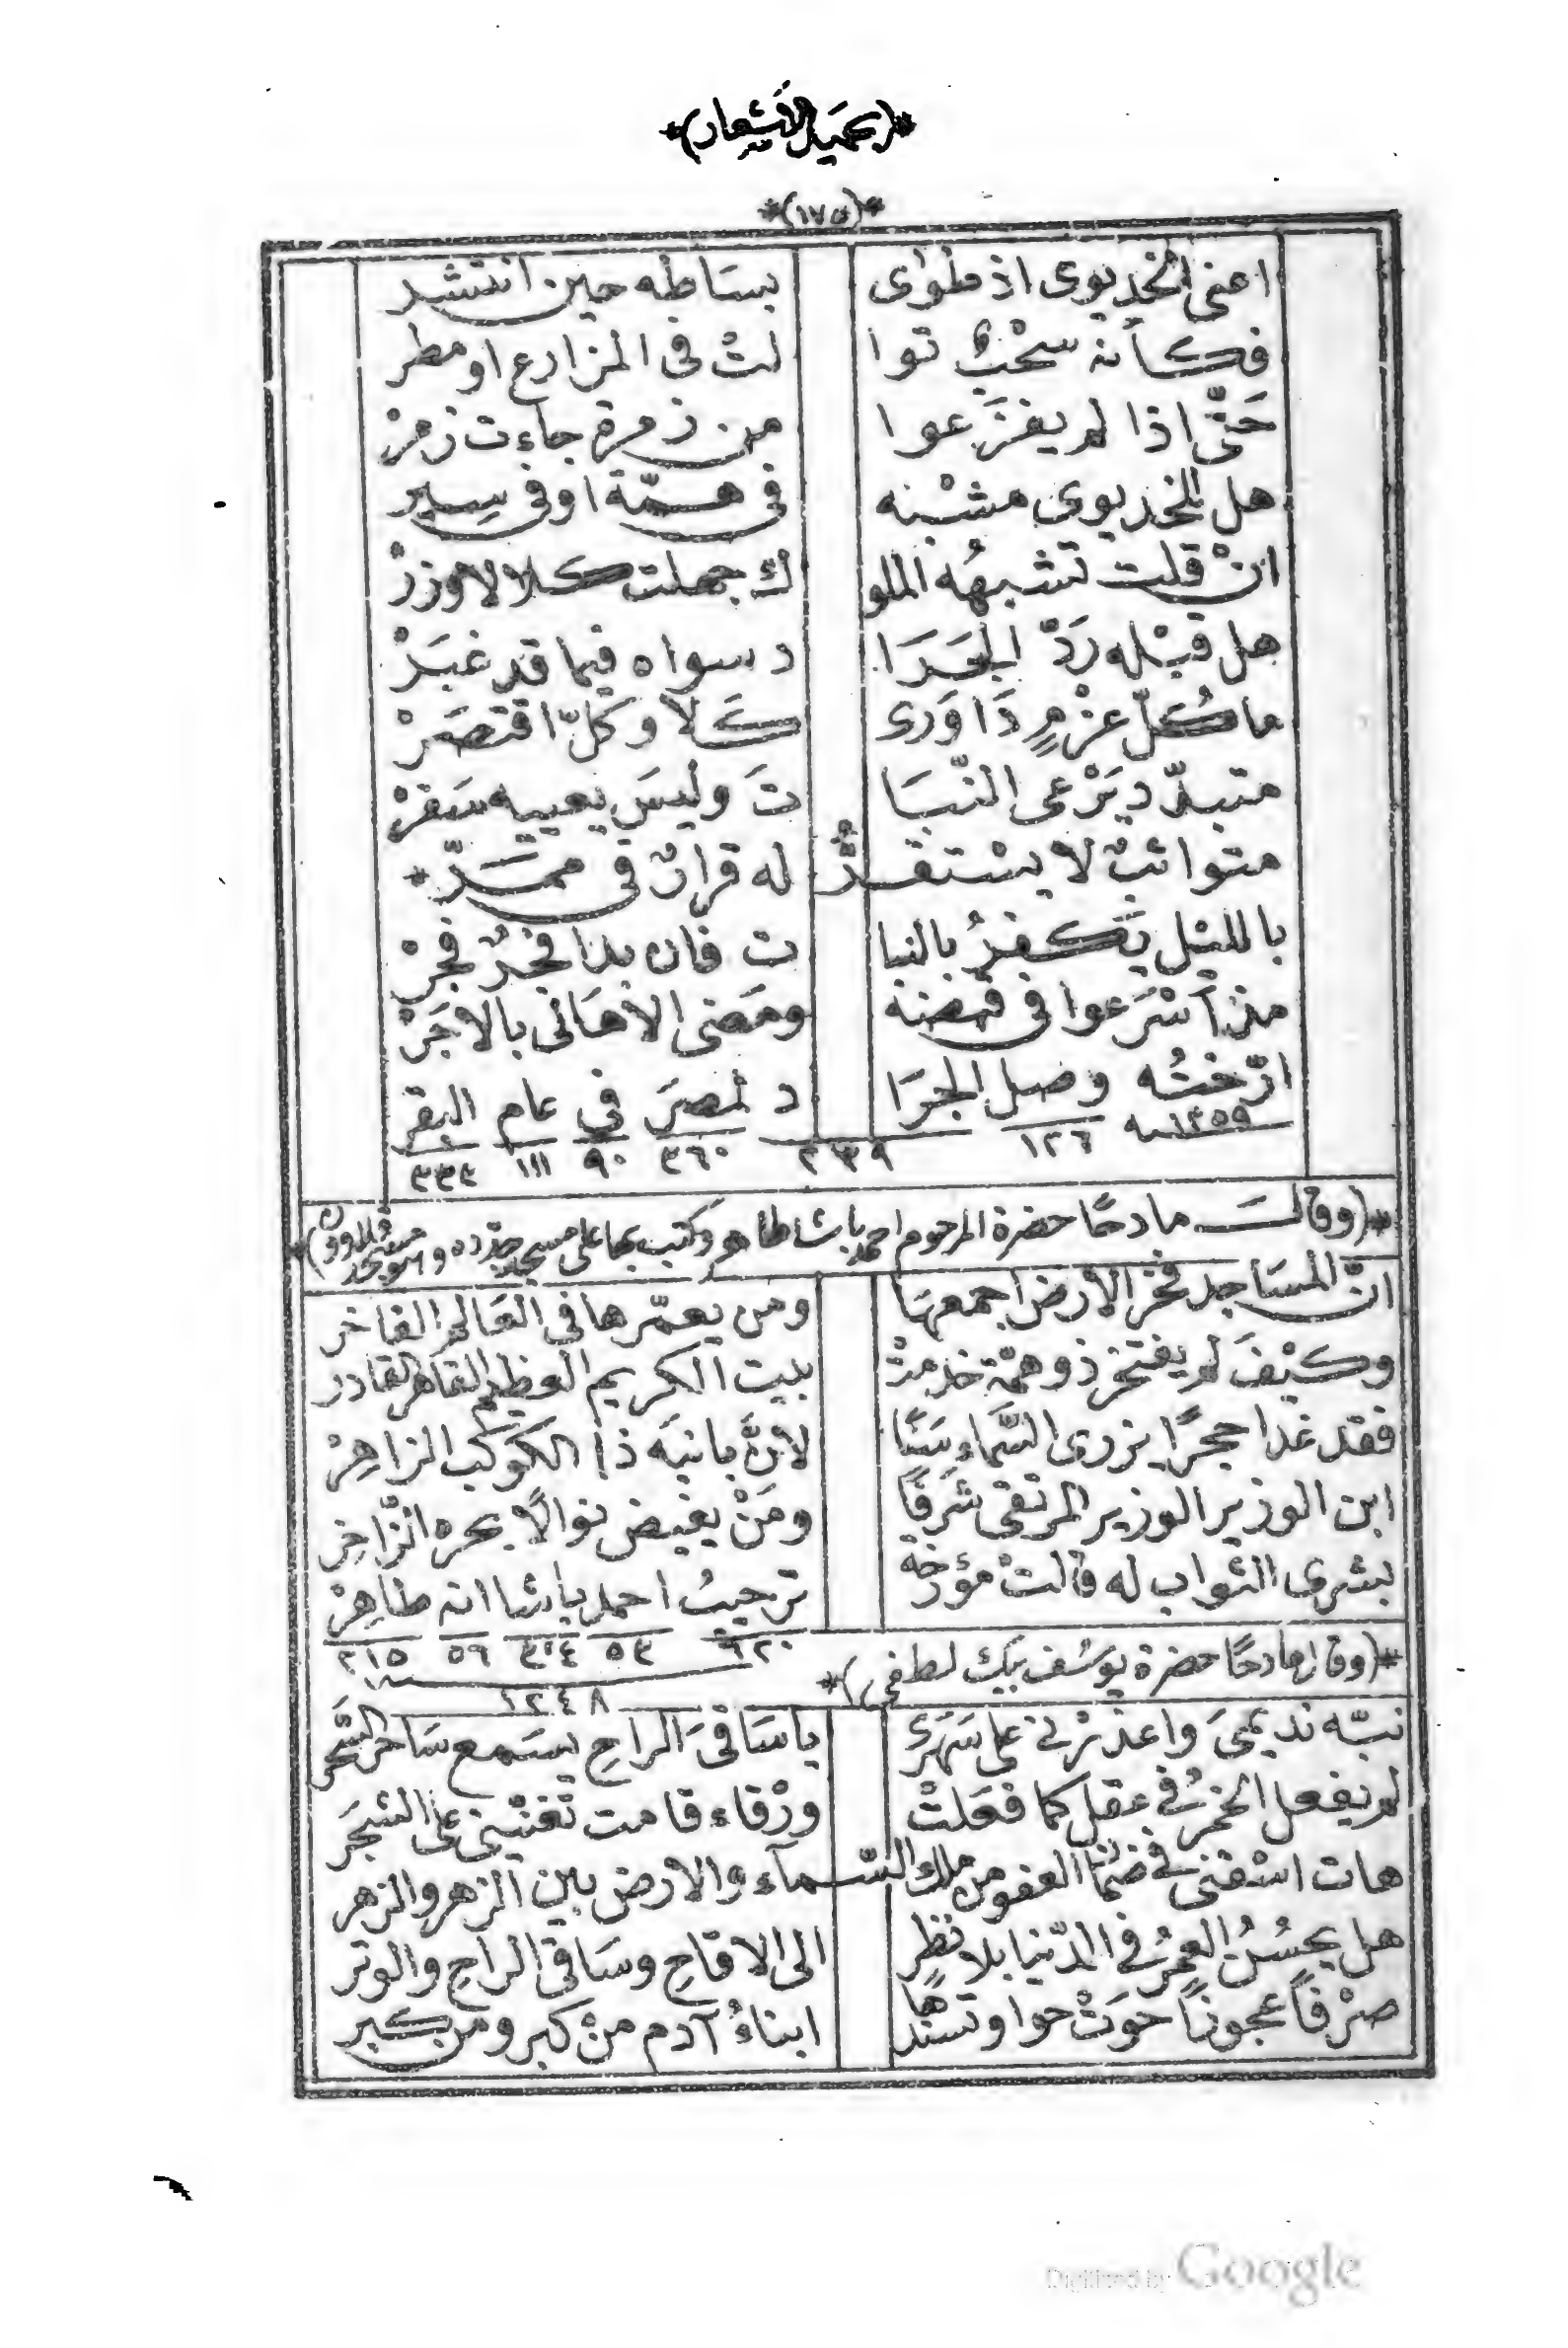 *(بجميل الأشعار)*
*(١٧٥)*
اعنى الخديوى اذ طوى بساطه حين انتشر
فكأنه سحْبٌ توا لتْ فى المزارع او مطر
حَتّى اذا لم يفزَعوا من زمرة جاءت زمرْ
هل للخديوى مشبْه فى همّة او فى سِير
انْ قلت تشبهُه الملو كُ جهلت كلا لا وزرْ
هل قبْله رَدّ الجَرَا د سواه فيما قد غبَرْ
ما كُلّ عزْمٍ ذَا وَرى كَلاّ وكلّ اقتصَرْ
متبدّد يَرْعى النّبَا تَ وليسَ يعييه سَفرْ
متواثبٌ لا يسْتقرُّ له قرارٌ فى ممَرّ *
بالليْل يَكفرُ بالنبا ت فان بدا فجْرٌ فجَرْ
مذ اسْرَعوا فى قبضه ومَضى الأهَالى بالأجَرْ
ارّختُه وصل الجرَا د لمصرَ في عام البقر
١٢٥٩سه ١٢٦ ٢٣٩ ٣٦٠ ٩٠ ١١١ ٣٣٣
*(وقالَ مادحًا حضرة المرحوم احمد باشا طاهر وكتب بها على مسجد جدّده)*
انّ المسَاجد فخر الأرض اجمعهَا ومن يعمّرها فى العَالم الفاخر
وكيْفَ لم يفتخر ذو همّة خدمتْ بيت الكريم العظيم القاهر القادر
فقد غدا حجرًا يزرى السَّماء سَنًا لأنَّ بانيَه ذا الكوكب الزاهِرْ
ابن الوزير الوزير المرتقى شرَفًا ومَنْ يفيض نوالاً بحره الزّاخِر
بشرى الثواب له قالتْ مؤرخة ترحيبُ احمد باشا انه طاهِرْ
٦٢٠ ٥٣ ٣٠٤ ٥٦ ٢١٥
١٢٤٨
*(وقال مادحًا حضرة يوسُف بيك لطفى)*
نبّه نديمىَ واعذرْنى على سَهَرى ياسَاقىَ الراحِ يسَمع سَاحر السَّحَر
لم يفعل الخمرُ فى عقل كما فعَلتْ ورْقاء قامت تغنّينى على الشجَر
هات اسْقنى فى ضمّا العفو من ملك السّمآء والأرض بين الزهر والزهر
هل يحسُنُ العمرُ فى الدّنيا بلا نظرٍ الى الاقاحِ وسَاقى الراحِ والوتر
صرْفاً عجوزاً حوَتْ حوا وتسندها ابناءُ آدم منْ كبر ومن كبر
Digitized by Google